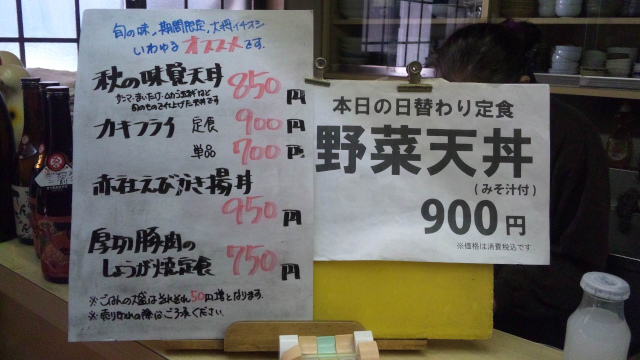 旬の味，期間限定，大将イチオシ
いわゆるオススメです。
秋の味覚天丼 850円
カキフライ 定食 900円
単品 700円
赤社えびかき揚丼
950円
厚切豚肉の
しょうが焼定食 750円
※ごはんの大盛はそれぞれ50円増となります。
※売り切れの際はご了承ください。
本日の日替わり定食
野菜天丼
(みそ汁付)
900円
※価格は消費税込です